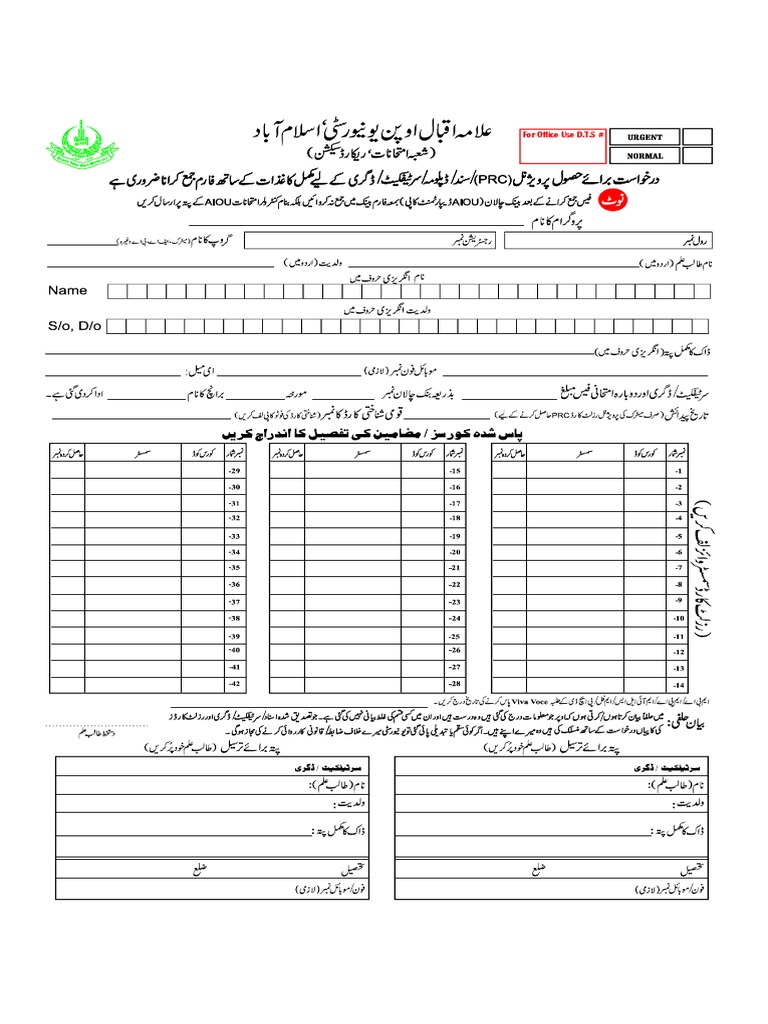 علامہ اقبال اوپن یونیورسٹی، اسلام آباد
(شعبہ امتحانات، ریکارڈ سیکشن)
For Office Use D.T.S #
URGENT
NORMAL
درخواست برائے حصول پرویژنل (PRC)/سند/ڈپلومہ/سرٹیفکیٹ/ڈگری کے لیے مکمل کاغذات کے ساتھ فارم جمع کرانا ضروری ہے
نوٹ فیس جمع کرانے کے بعد بینک چالان (AIOU ڈیپارٹمنٹ کاپی) بمعہ فارم بینک میں جمع نہ کروائیں بلکہ بنام کنٹرولر امتحانات AIOU کے پتہ پر ارسال کریں
پروگرام کا نام
رول نمبر رجسٹریشن نمبر گروپ کا نام (میٹرک، ایف اے، بی اے وغیرہ)
نام طالب علم (اردو میں) ولدیت (اردو میں)
نام انگریزی حروف میں
Name
ولدیت انگریزی حروف میں
S/o, D/o
ڈاک کا مکمل پتہ (انگریزی حروف میں)
موبائل فون نمبر (لازمی) ای میل:
سرٹیفکیٹ/ڈگری اور دوبارہ امتحانی فیس مبلغ بذریعہ بنک چالان نمبر مورخہ برانچ کا نام ادا کر دی گئی ہے۔
تاریخ پیدائش (صرف میٹرک کی پرویژنل رزلٹ کارڈ PRC حاصل کرنے کے لیے) قومی شناختی کارڈ کا نمبر (شناختی کارڈ کی فوٹو کاپی لف کریں)
پاس شدہ کورسز / مضامین کی تفصیل کا اندراج کریں
نمبر شمار کورس کوڈ سمسٹر حاصل کردہ نمبر نمبر شمار کورس کوڈ سمسٹر حاصل کردہ نمبر نمبر شمار کورس کوڈ سمسٹر حاصل کردہ نمبر
-1 -15 -29
-2 -16 -30
-3 -17 -31
-4 -18 -32
-5 -19 -33
-6 -20 -34
-7 -21 -35
-8 -22 -36
-9 -23 -37
-10 -24 -38
-11 -25 -39
-12 -26 -40
-13 -27 -41
-14 -28 -42
(رزلٹ کارڈ سمسٹر وائز لف کریں)
ایم بی اے/ایم پی اے/ایم آئی ایل ایس/ایم فل/پی ایچ ڈی کے طلبہ Viva Voce پاس کرنے کی تاریخ درج کریں۔
بیان حلفی: میں حلفاً بیان کرتا ہوں/کرتی ہوں کہ اوپر جو معلومات درج کی گئی ہیں وہ درست ہیں اور ان میں کسی قسم کی غلط بیانی نہیں کی گئی ہے۔ جو تصدیق شدہ اسناد/سرٹیفکیٹ/ڈگری اور رزلٹ کارڈز
کی کاپیاں درخواست کے ساتھ منسلک کی گئی ہیں وہ میرے اپنے ہیں۔ اگر کوئی سقم یا تبدیلی پائی گئی تو یونیورسٹی میرے خلاف ضابطہ/قانونی کارروائی کرنے کی مجاز ہوگی۔
دستخط طالب علم
پتہ برائے ترسیل (طالب علم خود پُر کریں) پتہ برائے ترسیل (طالب علم خود پُر کریں)
سرٹیفکیٹ / ڈگری سرٹیفکیٹ / ڈگری
نام (طالب علم): نام (طالب علم):
ولدیت: ولدیت:
ڈاک کا مکمل پتہ: ڈاک کا مکمل پتہ:
تحصیل ضلع تحصیل ضلع
فون/موبائل نمبر (لازمی) فون/موبائل نمبر (لازمی)